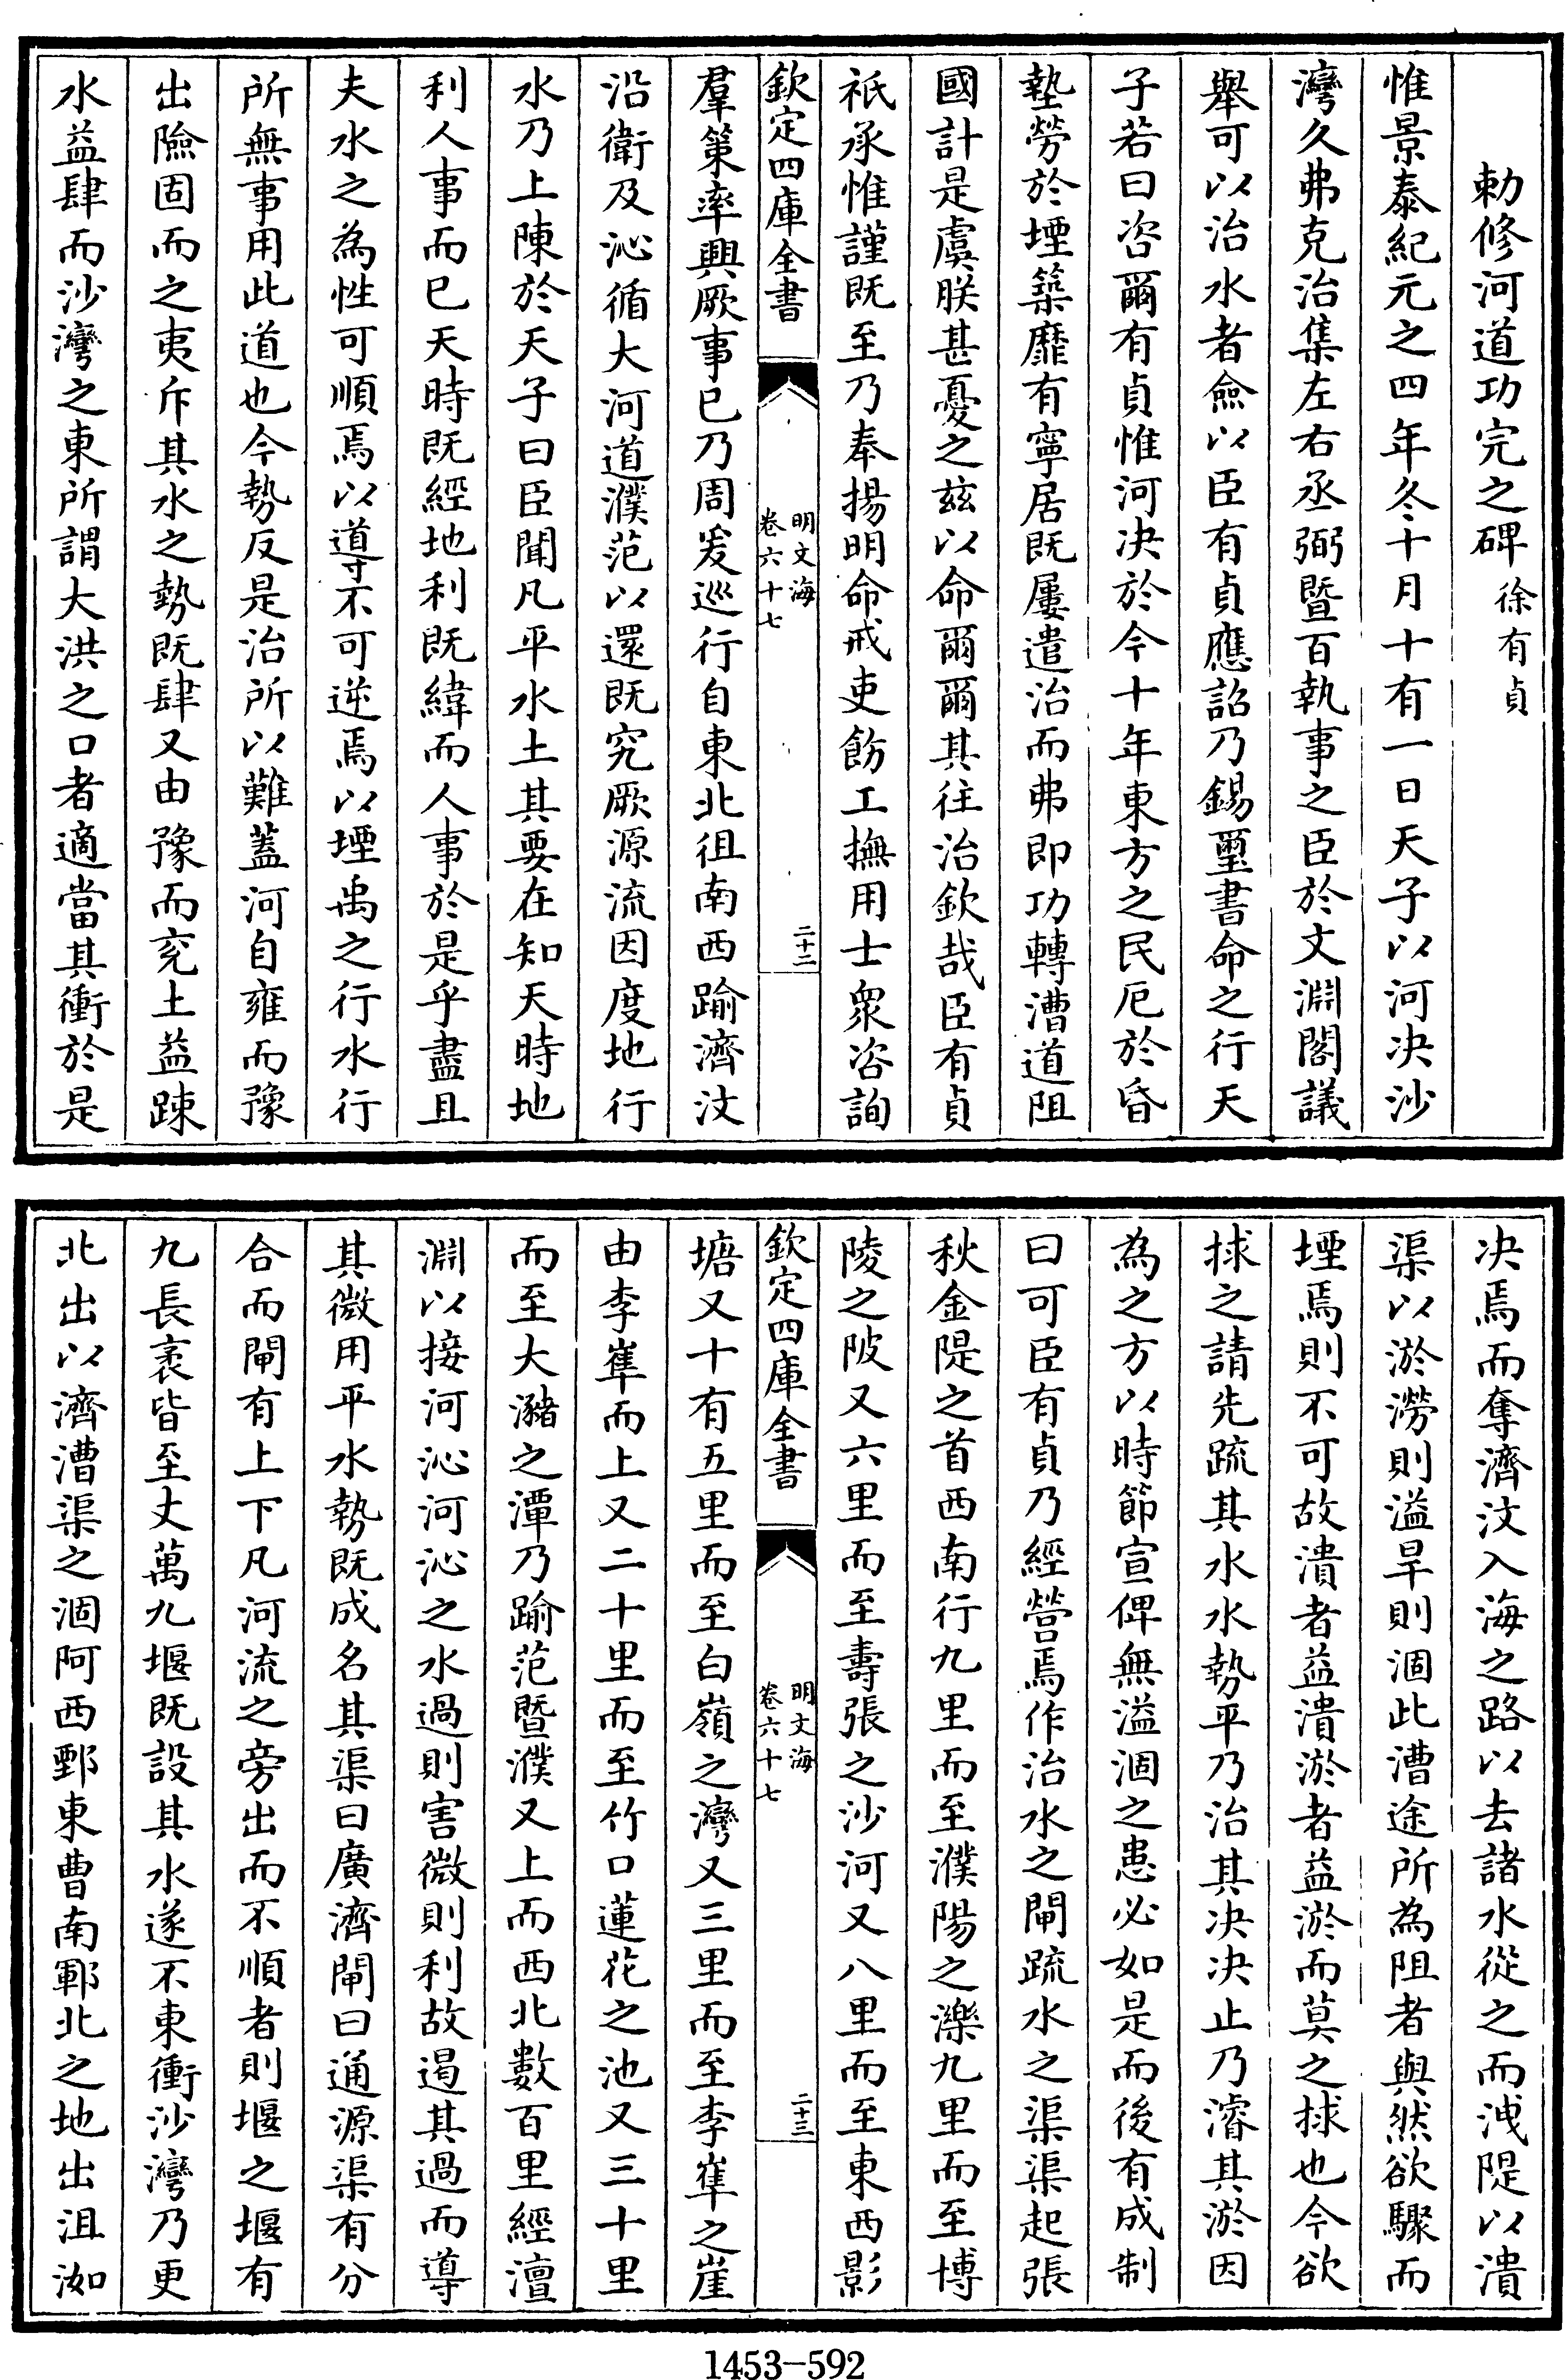 勅修河道功完之碑 徐有貞
惟景泰紀元之四年冬十月十有一日天子以河决沙
灣久弗克治集左右丞弼暨百執事之臣於文淵閣議
舉可以治水者僉以臣有貞應詔乃錫璽書命之行天
子若曰咨爾有貞惟河决於今十年東方之民厄於昏
墊勞於堙築靡有寧居既屢遣治而弗即功轉漕道阻
國計是虞朕甚憂之兹以命爾爾其往治欽哉臣有貞
祇承惟謹既至乃奉揚明命戒吏飭工撫用士衆咨詢
欽定四庫全書 明文海 卷六十七 二十二
羣策率興厥事已乃周爰巡行自東北徂南西踰濟汶
沿衛及沁循大河道濮范以還既究厥源流因度地行
水乃上陳於天子曰臣聞凡平水土其要在知天時地
利人事而已天時既經地利既緯而人事於是乎盡且
夫水之為性可順焉以導不可逆焉以堙禹之行水行
所無事用此道也今勢反是治所以難蓋河自雍而豫
出險固而之夷斥其水之勢既肆又由豫而兖土益踈
水益肆而沙灣之東所謂大洪之口者適當其衝於是
决焉而奪濟汶入海之路以去諸水從之而洩隄以潰
渠以淤澇則溢旱則涸此漕途所為阻者與然欲驟而
堙焉則不可故潰者益潰淤者益淤而莫之捄也今欲
捄之請先疏其水水勢平乃治其决决止乃濬其淤因
為之方以時節宣俾無溢涸之患必如是而後有成制
曰可臣有貞乃經營焉作治水之閘疏水之渠渠起張
秋金隄之首西南行九里而至濮陽之濼九里而至博
陵之陂又六里而至壽張之沙河又八里而至東西影
欽定四庫全書 明文海 卷六十七 二十三
塘又十有五里而至白嶺之灣又三里而至李崋之崖
由李崋而上又二十里而至竹口蓮花之池又三十里
而至大瀦之潭乃踰范暨濮又上而西北數百里經澶
淵以接河沁河沁之水過則害微則利故遏其過而導
其微用平水勢既成名其渠曰廣濟閘曰通源渠有分
合而閘有上下凡河流之旁出而不順者則堰之堰有
九長袤皆至丈萬九堰既設其水遂不東衝沙灣乃更
北出以濟漕渠之涸阿西鄄東曹南鄆北之地出沮洳
1453—592